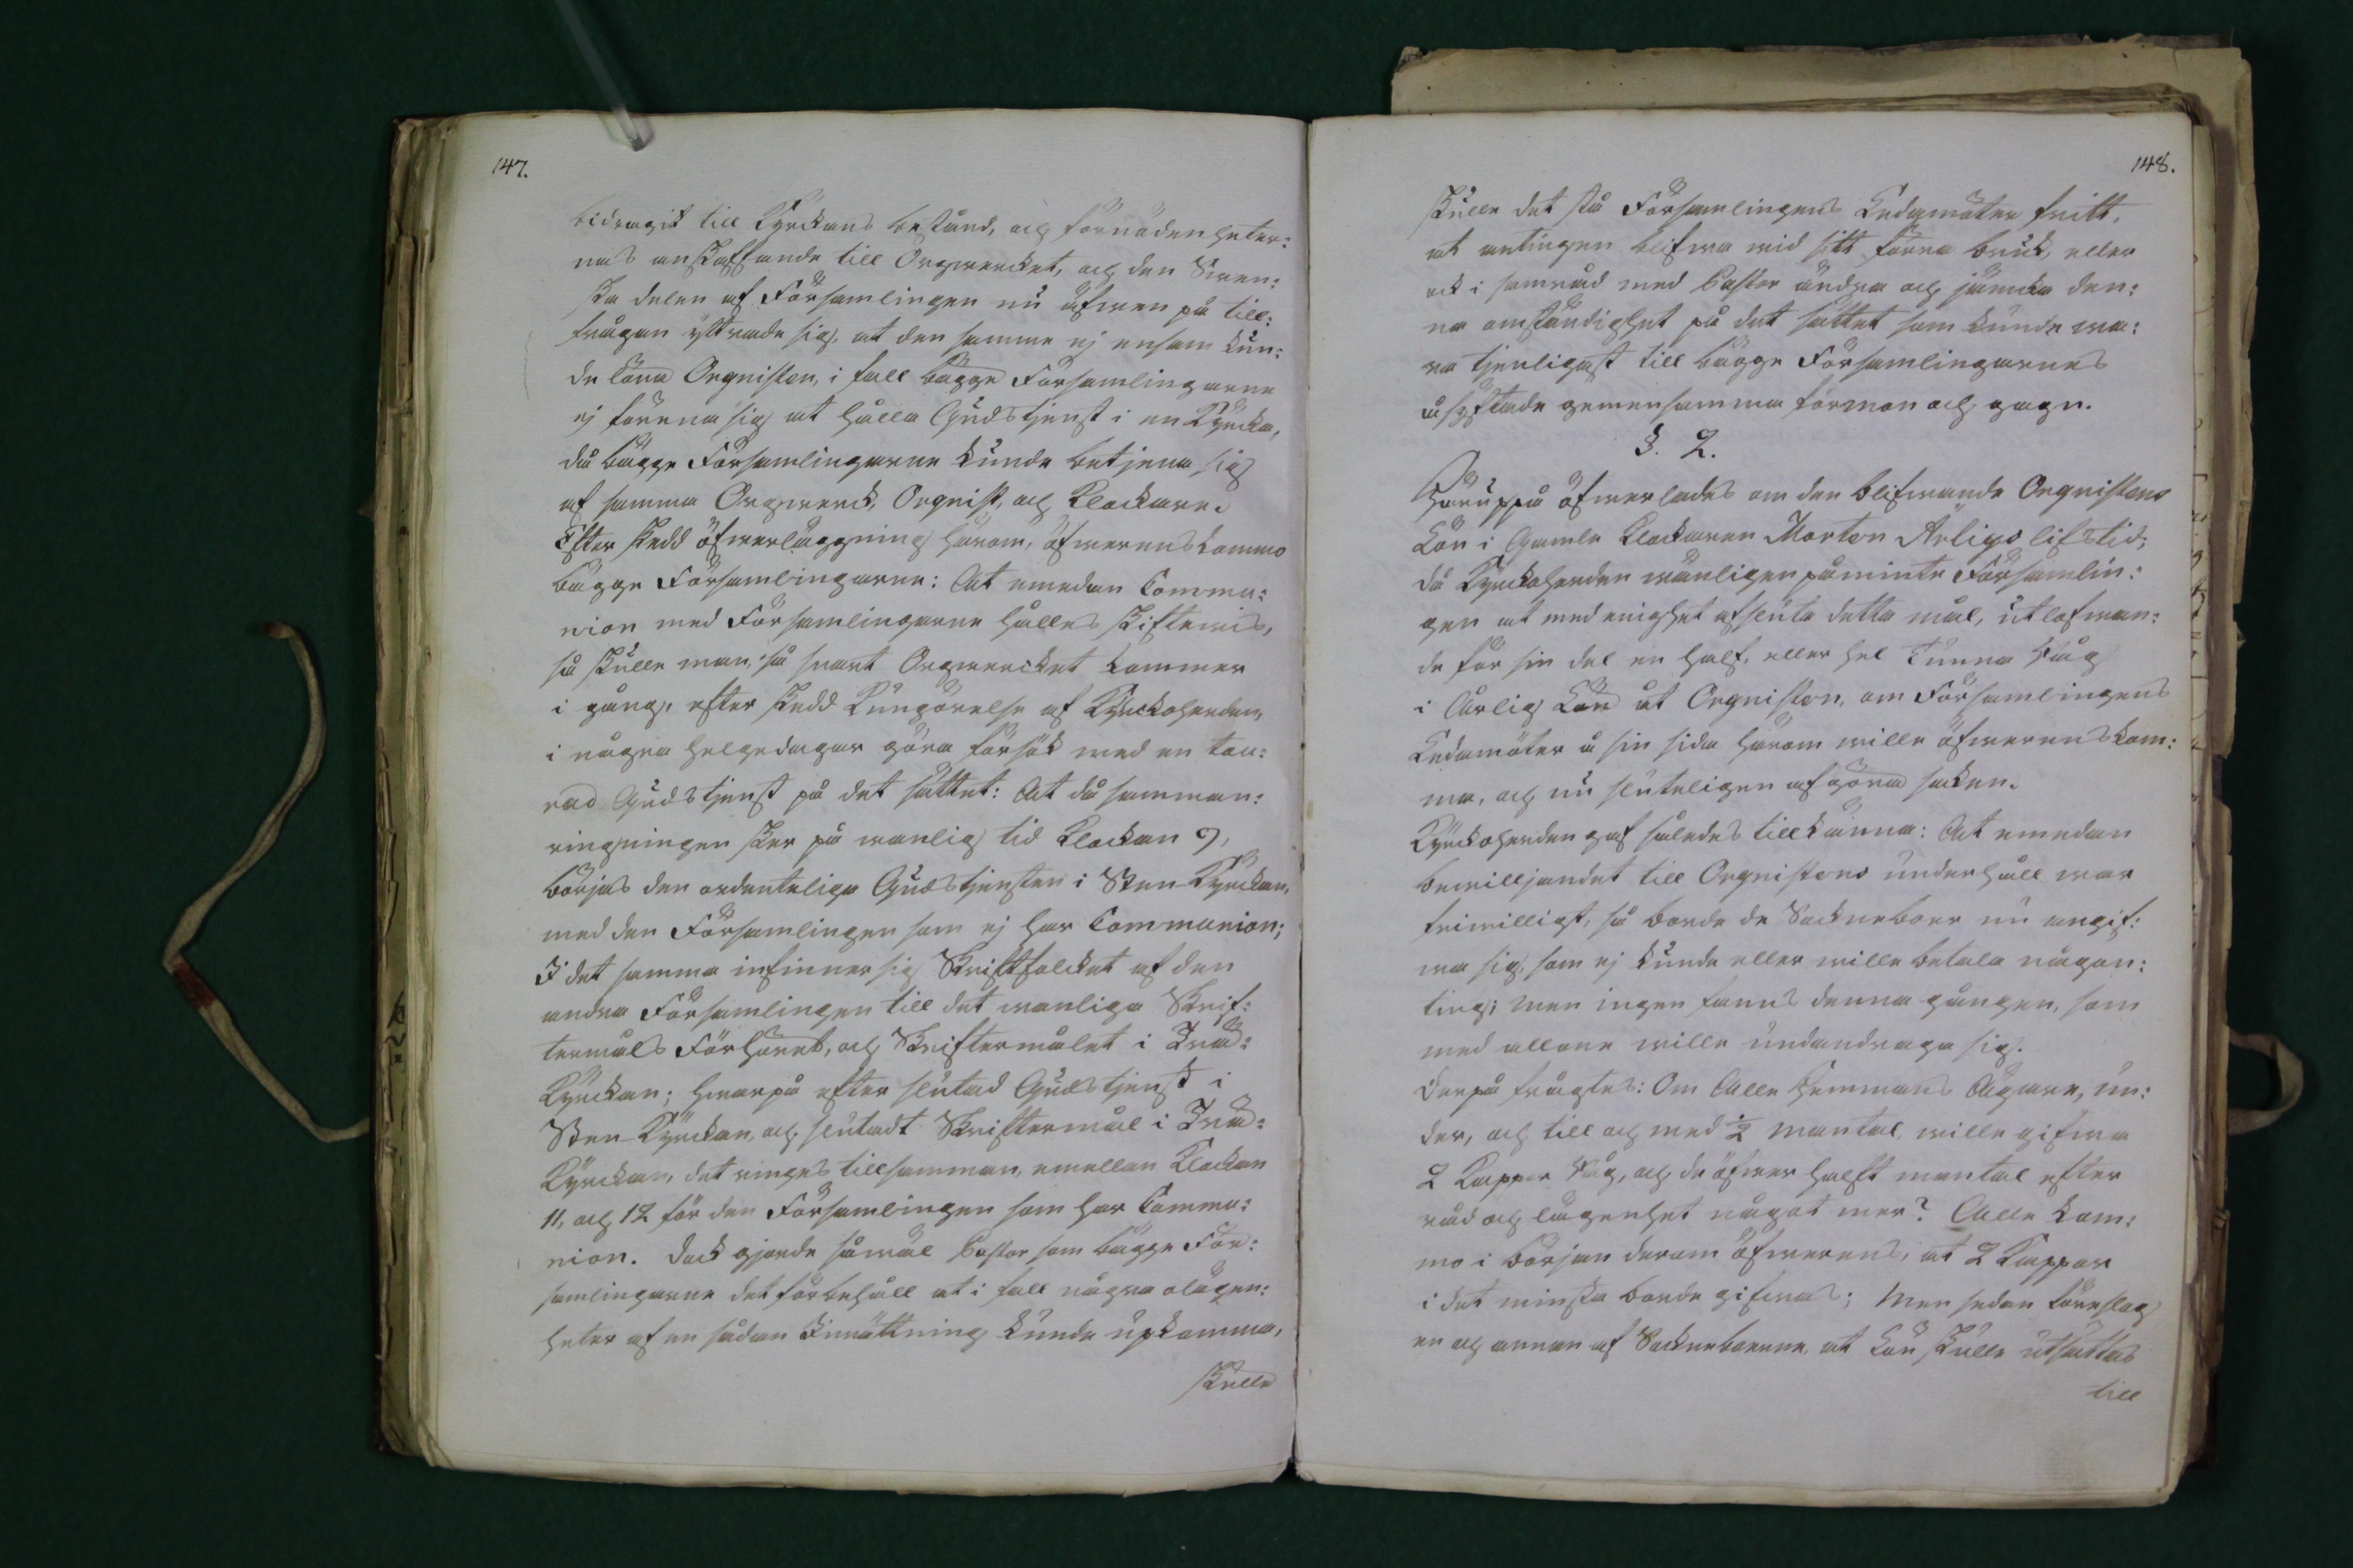 147.
bidragit till Kyrckans bestånd, och förnödenheter:
nas anskaffande till Orgwercket, och den Swen:
ska delen af Församlingen nu äfwen på till:
frågan yttrade sig, at den samma ej ensam kun:
de löna Orgnisten, i fall bägge Församlingarne
ej förena sig at hålla Gudstjenst i en Kyrcka,
då bägge Församlingarne kunde betjena sig
af samma Orgwerck, Orgnist, och Klockare.
Efter skedd öfwerläggning härom, öfwerenskommo
bägge Församlingarne: At emedan Commu:
nion med Församlingarne hålles skiftewis,
så skulle man, så snart Orgwercket kommer
i gång, efter skedd Kungörelse af Kyrckoherden,
i några helgedagar göra försök med en
Gudstjenst på det sättet: At då samman:
ringningen sker på wanlig tid Klockan 9,
börjas den ordenteliga Gudstjensten i Sten-Kyrckan,
med den Församlingen som ej har Communion;
I det samma infinner sig Skriftfolcket af den
andra Församlingen till det wanliga Skrif:
termåls Förhöret, och Skriftermålet i Trä-
Kyrckan; hwarpå efter slutad Gudstjenst i
Sten-Kyrckan, och slutadt Skriftermål i Trä-
Kyrckan, det ringes tillsamman, emellan Klockan
11, och 12 för den Församlingen som har Commu:
nion. Dock gjorde såwäl Pastor som bägge För:
samlingarne det förbehåll at i fall några olägen:
heter af en sådan Inrättning kunde upkomma,
skulle
148.
skulle det stå Församlingens Ledamöter fritt,
at antingen blifwa wid sitt förra bruk, eller
ock i samråd med Pastor ändra och jämcka den:
na omständighet på det sättet som kunde wa:
ra tjenligast till bägge Församlingarnes
åsyftade gemensamma förmon och gagn.
§. 2.
Häruppå öfwerlades om den blifwande Orgnistens
Lön i Gamle Klockaren Morten Ärligs lifstid,
då Kyrckoherden wänligen påminte Församlin:
gen at med enighet afsluta detta mål, utlofwan:
de för sin del en half, eller hel Tunna Råg
i Årlig Lön åt Orgnisten, om Församlingens
Ledamöter å sin sida härom wille öfwerenskom:
ma, och nu sluteligen afgöra saken.
Kyrckoherden gaf således tillkänna: At emedan
bewilljandet till Orgnistens underhåll war
friwilligt, så borde de Sockneboer nu angif:
wa sig, som ej kunde eller wille betala någon:
ting; men ingen fanns denna gången, som
med allone wille undandraga sig.
Derpå frågtes: Om Alle Hemmans Ägare, un:
der, och till och med ½ mantal, wille gifwa
2 Kappar Råg, och de öfwer halft mantal efter
råd och lägenhet något mer? Alle kom:
mo i början derom öfwerens, at 2 Kappar
i det minsta borde gifwas; Men sedan föreslog
en och annan af Sockneboerne, at Lön skulle utsättas
till